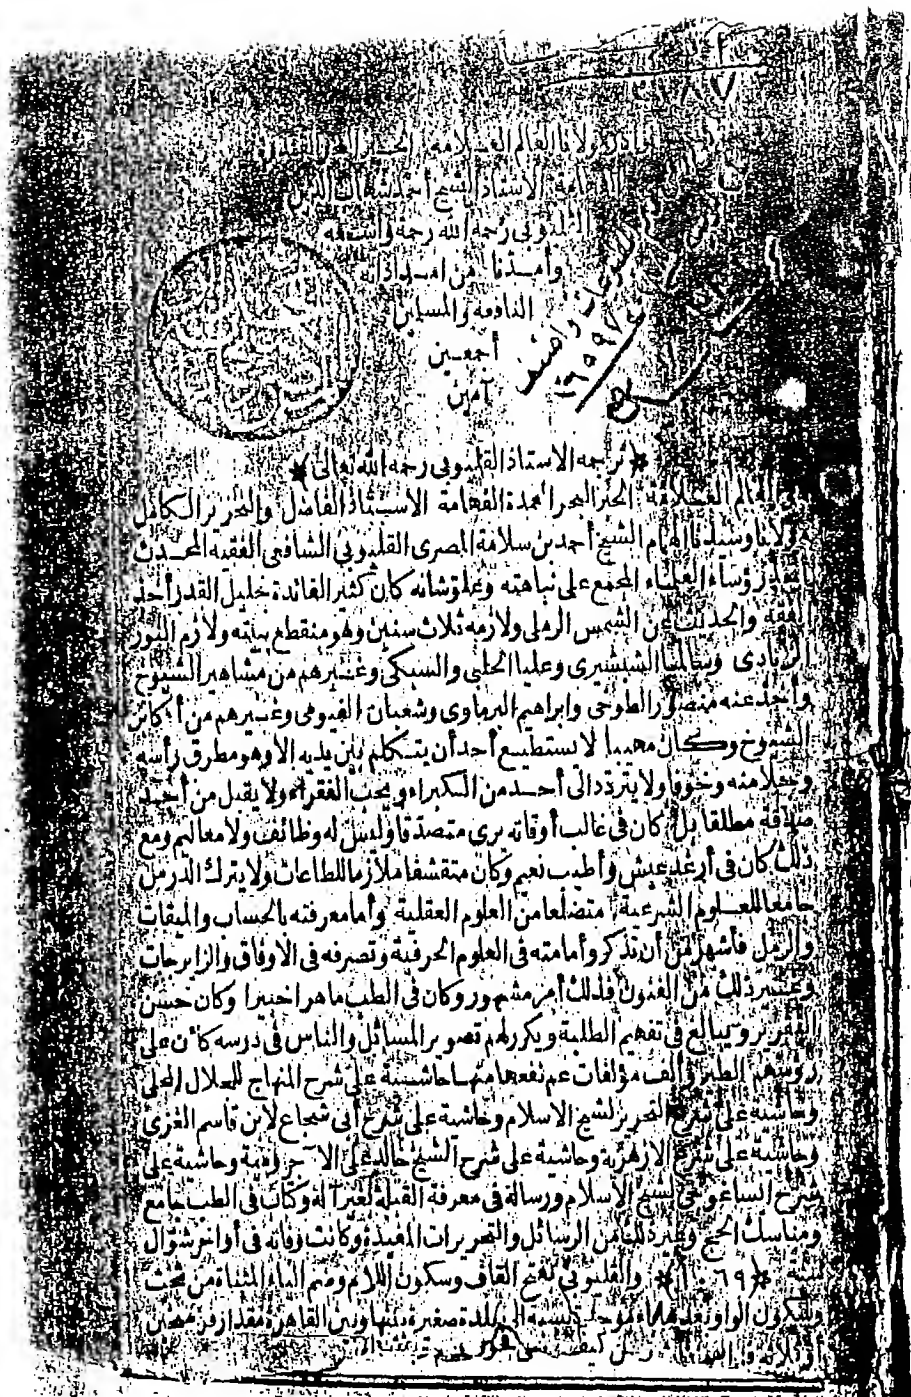 لمولانا العالم العلامة الحبر البحر
الفهامة الاستاذ الشيخ أحمد شهاب الدين
القليوبى رحمه الله رحمة واسعة
وأمدنا من امداداته
النافعة والمسلمين
أجمعين
آمين
٢٦٥٩٧
* ترجمة الاستاذ القليوبى رحمه الله تعالى *
العالم العلامة الحبر البحر العمدة الفهامة الاستاذ الفاضل والنحرير الكامل
مولانا وسيدنا الهمام الشيخ أحمد بن سلامة المصرى القليوبى الشافعى الفقيه المحدث
أحد رؤساء العلماء المجمع على نباهته وعلو شانه كان كثير الفائدة جليل القدر أخذ
الفقه والحديث عن الشمس الرملى ولازمه ثلاث سنين وهو منقطع ببيته ولازم النور
الزيادى وسالما الشبشيرى وعليا الحلبى والسبكى وغيرهم من مشاهير الشيوخ
وأخذ عنه منصور الطوخى وابراهيم البرماوى وشعبان الفيومى وغيرهم من أكابر
الشيوخ وكان مهيبا لا يستطيع أحد أن يتكلم بين يديه الا وهو مطرق رأسه
وجلا منه وخوفا ولا يتردد الى أحد من الكبراء ويحب الفقراء ولا يقبل من أحد
صدقة مطلقا بل كان فى غالب أوقاته يرى متصدقا وليس له وظائف ولا معاليم ومع
ذلك كان فى أرغد عيش وأطيب نعيم وكان متقشفا ملازما للطاعات ولا يترك الدرس
جامعا للعلوم الشرعية متضلعا من العلوم العقلية وأما معرفته بالحساب والميقات
والرمل فأشهر من أن تذكر وأما مته فى العلوم الحرفية وتصرفه فى الاوفاق والزايرجات
وغير ذلك من الفنون فذلك أمر مشهور وكان فى الطب ماهرا خبيرا وكان حسن
التقرير ويبالغ فى تفهيم الطلبة ويكرر لهم تصوير المسائل والناس فى درسه كأن على
رؤسهم الطير وألف مؤلفات عم نفعها منها حاشية على شرح المنهاج للجلال المحلى
وحاشية على شرح التحرير لشيخ الاسلام وحاشية على شرح أبى شجاع لابن قاسم الغزى
وحاشية على شرح الازهرية وحاشية على شرح الشيخ خالد على الآجرومية وحاشية على
شرح ايساغوجى لشيخ الاسلام ورسالة فى معرفة القبلة بغير آلة وكتاب فى الطب جامع
ومناسك الحج وغير ذلك من الرسائل والتحريرات المفيدة وكانت وفاته فى أواخر شوال
سنة * ١٠٦٩ * والقليوبى بفتح القاف وسكون اللام وضم الياء المثناة من تحت
وسكون الواو بعدها باء موحدة نسبة الى بلدة صغيرة بينها وبين القاهرة مقدار فرسخين
أو ثلاثة